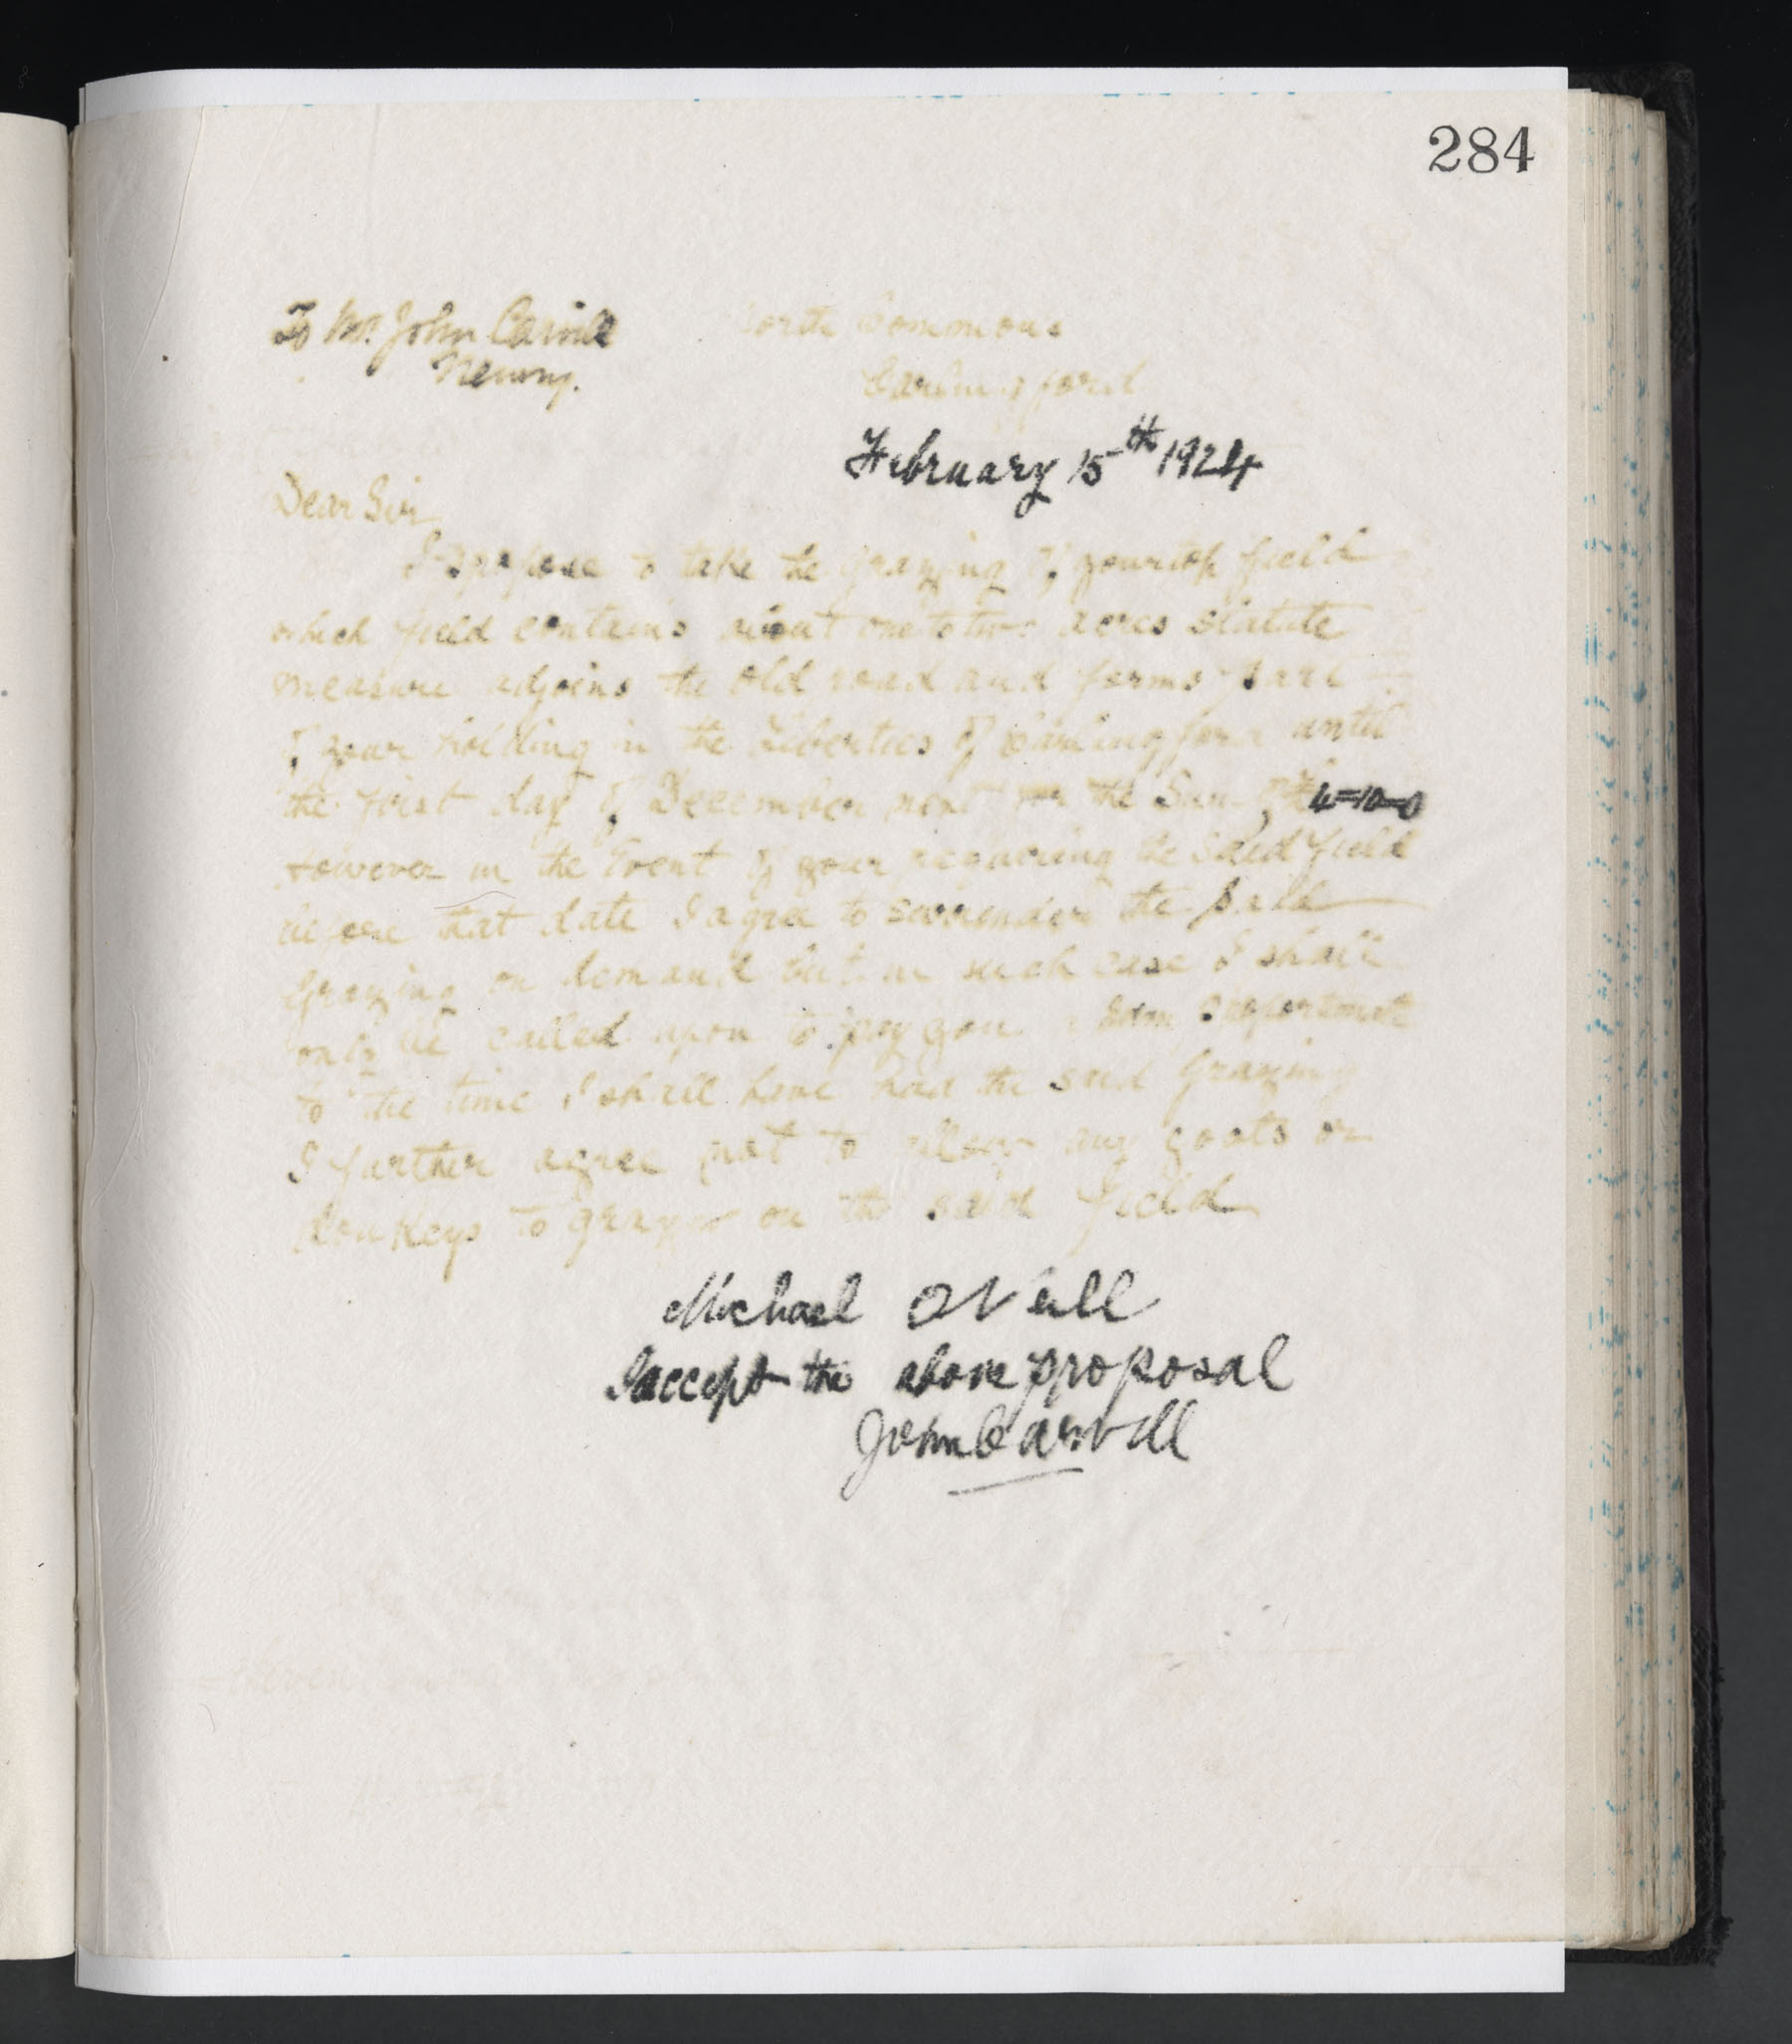 284
To Mr. John Carvill
Newry.
North Commons
Carlingford
February 15th 1924
Dear Sir
I propose to take the grazing of your top field
which field contains about one to two acres statute
measure adjoins the old road and forms part
of your holding in the Liberties of Carlingford until
the first day of December next for the Sum of £4-10-0
However in the Event of your requiring the said field
before that date I agree to surrender the said
Grazing on demand but in such case I shall
only be called upon to pay you a sum proportionate
to the time I shall have had the said Grazing
I further agree not to allow any goats or
donkeys to graze on the said field
Michael ONeill
I accept the above proposal
John Carvill